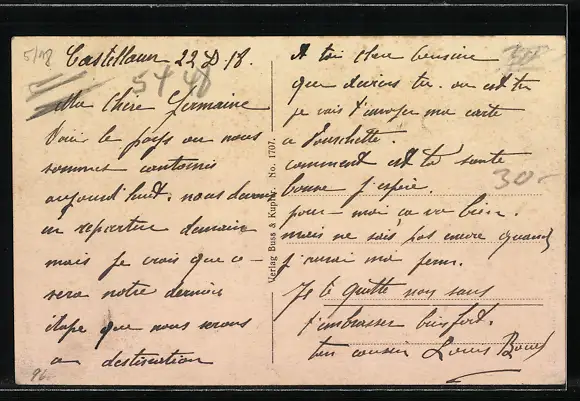 5/18
Castellaun 22 D. 18.
54 48
Ma Chère Germaine
Voici le pays ou nous
sommes cantonnés
aujourd'hui. nous devons
en repartir demain
mais je crois que ce
sera notre dernière
étape que nous serons
a destination
96.-
Verlag Buss & No. 1707.
A toi chère cousine
que deviens tu. ou est tu
je vais t'envoyer ma carte
a
comment est ta santé
30.-
bonne j'espère.
pour moi ça va bien.
mais ne sais pas encore quand
j'aurai ma perm.
Je te quitte non sans
t'embrasser bien fort.
ton cousin Louis